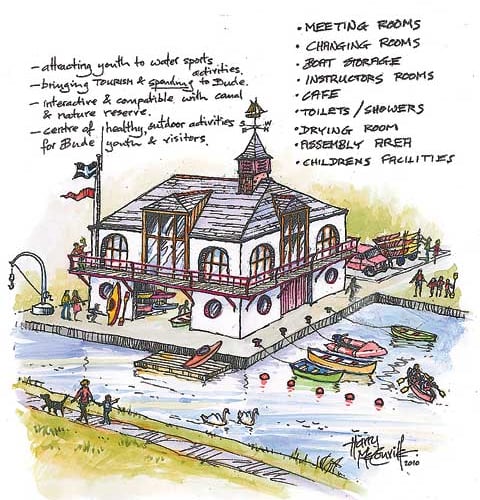 - attracting youth to water sports activities.
- bringing TOURISM & spending to Bude.
- interactive & compatible with canal & nature reserve.
- centre of healthy, outdoor activities for Bude youth & visitors.
• MEETING ROOMS
• CHANGING ROOMS
• BOAT STORAGE
• INSTRUCTORS ROOMS
• CAFE
• TOILETS/SHOWERS
• DRYING ROOM
• ASSEMBLY AREA
• CHILDRENS FACILITIES
W
Harry
2010